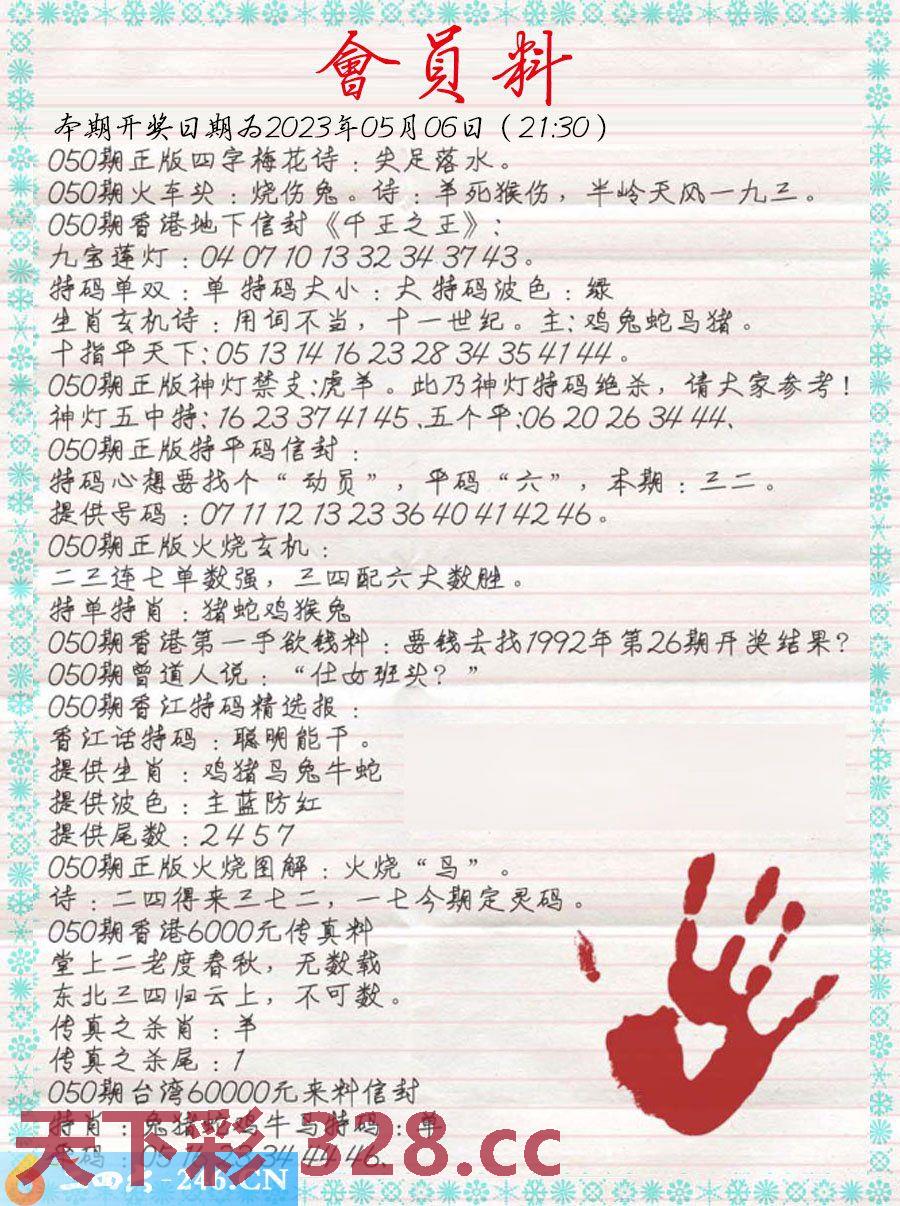 會員料
本期开奖日期为2023年05月06日（21:30）
050期正版四字梅花诗：失足落水。
050期火车头：烧伤兔。诗：羊死猴伤，半岭天风一九三。
050期香港地下信封《千王之王》:
九宝莲灯：04 07 10 13 32 34 37 43。
特码单双：单 特码大小：大 特码波色：绿
生肖玄机诗：用词不当，十一世纪。主: 鸡兔蛇马猪。
十指平天下: 05 13 14 16 23 28 34 35 41 44。
050期正版神灯禁支:虎羊。此乃神灯特码绝杀，请大家参考！
神灯五中特: 16 23 37 41 45 、五个平:06 20 26 34 44、
050期正版特平码信封：
特码心想要找个“动员”，平码“六”，本期：三二。
提供号码：07 11 12 13 23 36 40 41 42 46。
050期正版火烧玄机：
二三连七单数强，三四配六大数胜。
特单特肖：猪蛇鸡猴兔
050期香港第一手欲钱料：要钱去找1992年第26期开奖结果？
050期曾道人说：“仕女班头？”
050期香江特码精选报：
香江话特码：聪明能干。
提供生肖：鸡猪马兔牛蛇
提供波色：主蓝防红
提供尾数：2 4 5 7
050期正版火烧图解：火烧“鸟”。
诗：二四得来三七二，一七今期定灵码。
050期香港6000元传真料
堂上二老度春秋，无数载
东北三四归云上，不可数。
传真之杀肖：羊
传真之杀尾：1
050期台湾60000元来料信封
特肖：兔猪蛇鸡牛马特码：单
平码：05 23 34 44 46、
天下彩 328.cc
二四六-246.CN